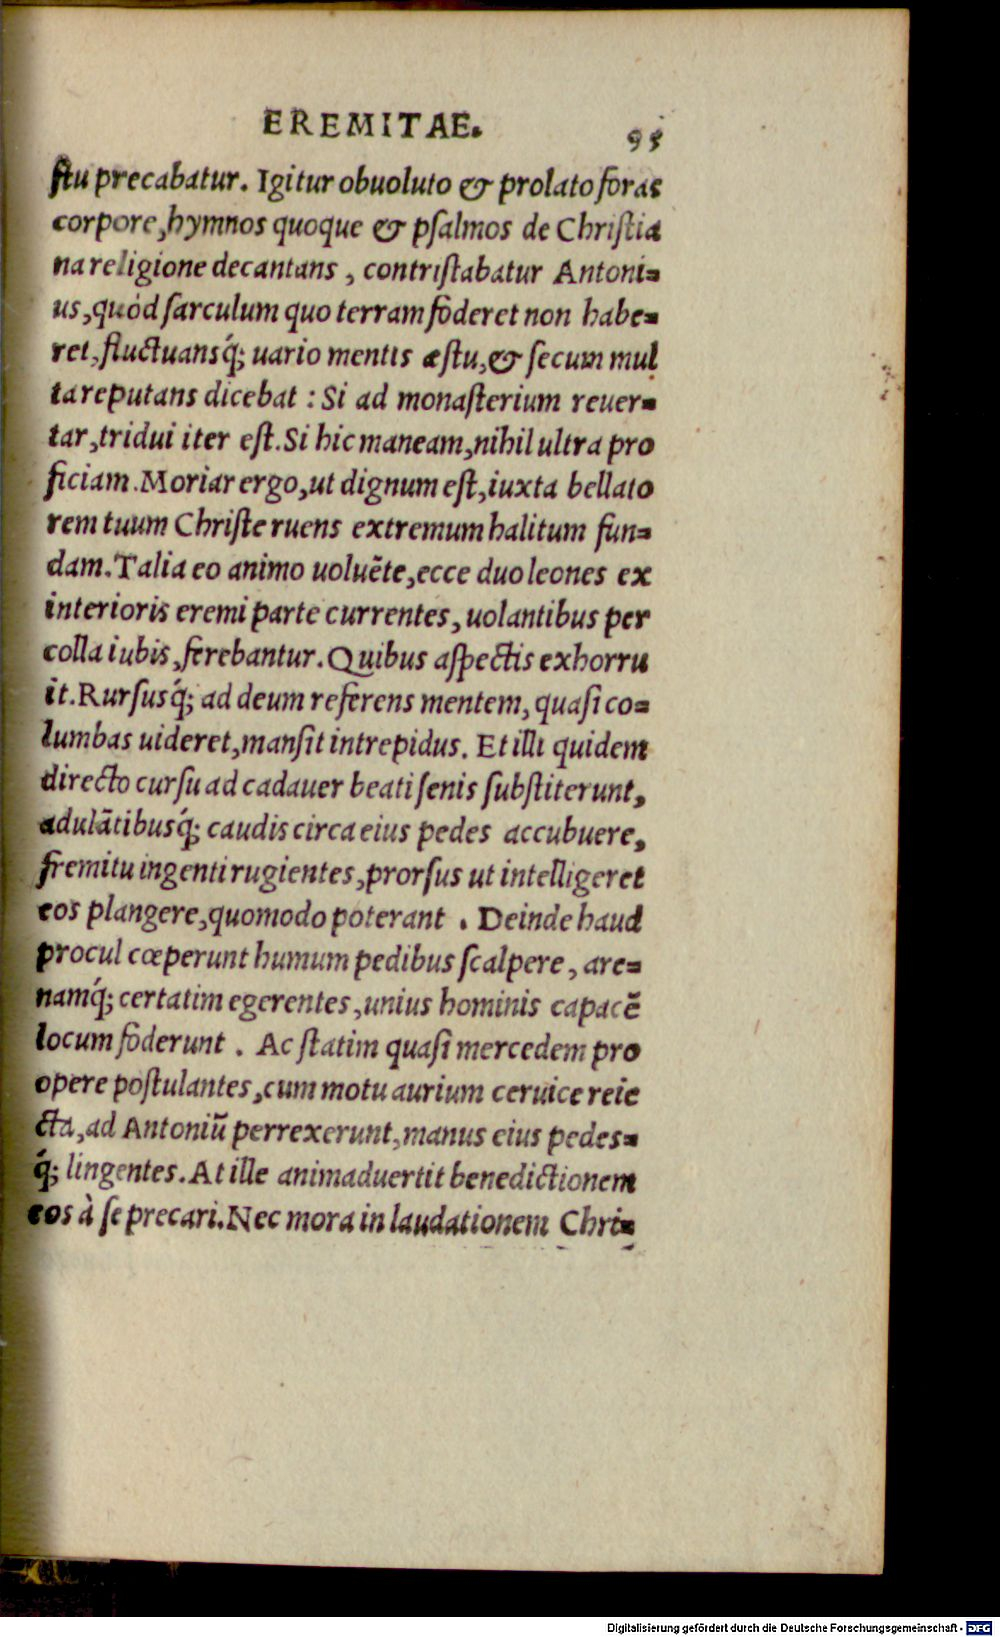 EREMITAE. 95
ſtu precabatur. Igitur obuoluto & prolato foras
corpore, hymnos quoque & pſalmos de Chriſtia
na religione decantans, contriſtabatur Antoni-
us, quòd ſarculum quo terram foderet non habe-
ret, fluctuansq́; uario mentis æſtu, & ſecum mul
ta reputans dicebat : Si ad monaſterium reuer-
tar, tridui iter eſt. Si hic maneam, nihil ultra pro
ficiam. Moriar ergo, ut dignum eſt, iuxta bellato
rem tuum Chriſte ruens extremum halitum fun-
dam. Talia eo animo uoluẽte, ecce duo leones ex
interioris eremi parte currentes, uolantibus per
colla iubis, ferebantur. Quibus aſpectis exhorru
it. Rurſusq́; ad deum referens mentem, quaſi co-
lumbas uideret, manſit intrepidus. Et illi quidem
directo curſu ad cadauer beati ſenis ſubſtiterunt,
adulãtibusq́; caudis circa eius pedes accubuere,
fremitu ingenti rugientes, prorſus ut intelligeret
eos plangere, quomodo poterant . Deinde haud
procul cœperunt humum pedibus ſcalpere, are-
namq́; certatim egerentes, unius hominis capacẽ
locum foderunt . Ac ſtatim quaſi mercedem pro
opere poſtulantes, cum motu aurium ceruice reie
cta, ad Antoniũ perrexerunt, manus eius pedes-
q́; lingentes. At ille animaduertit benedictionem
eos à ſe precari. Nec mora in laudationem Chri-
Digitalisierung gefördert durch die Deutsche Forschungsgemeinschaft - DFG